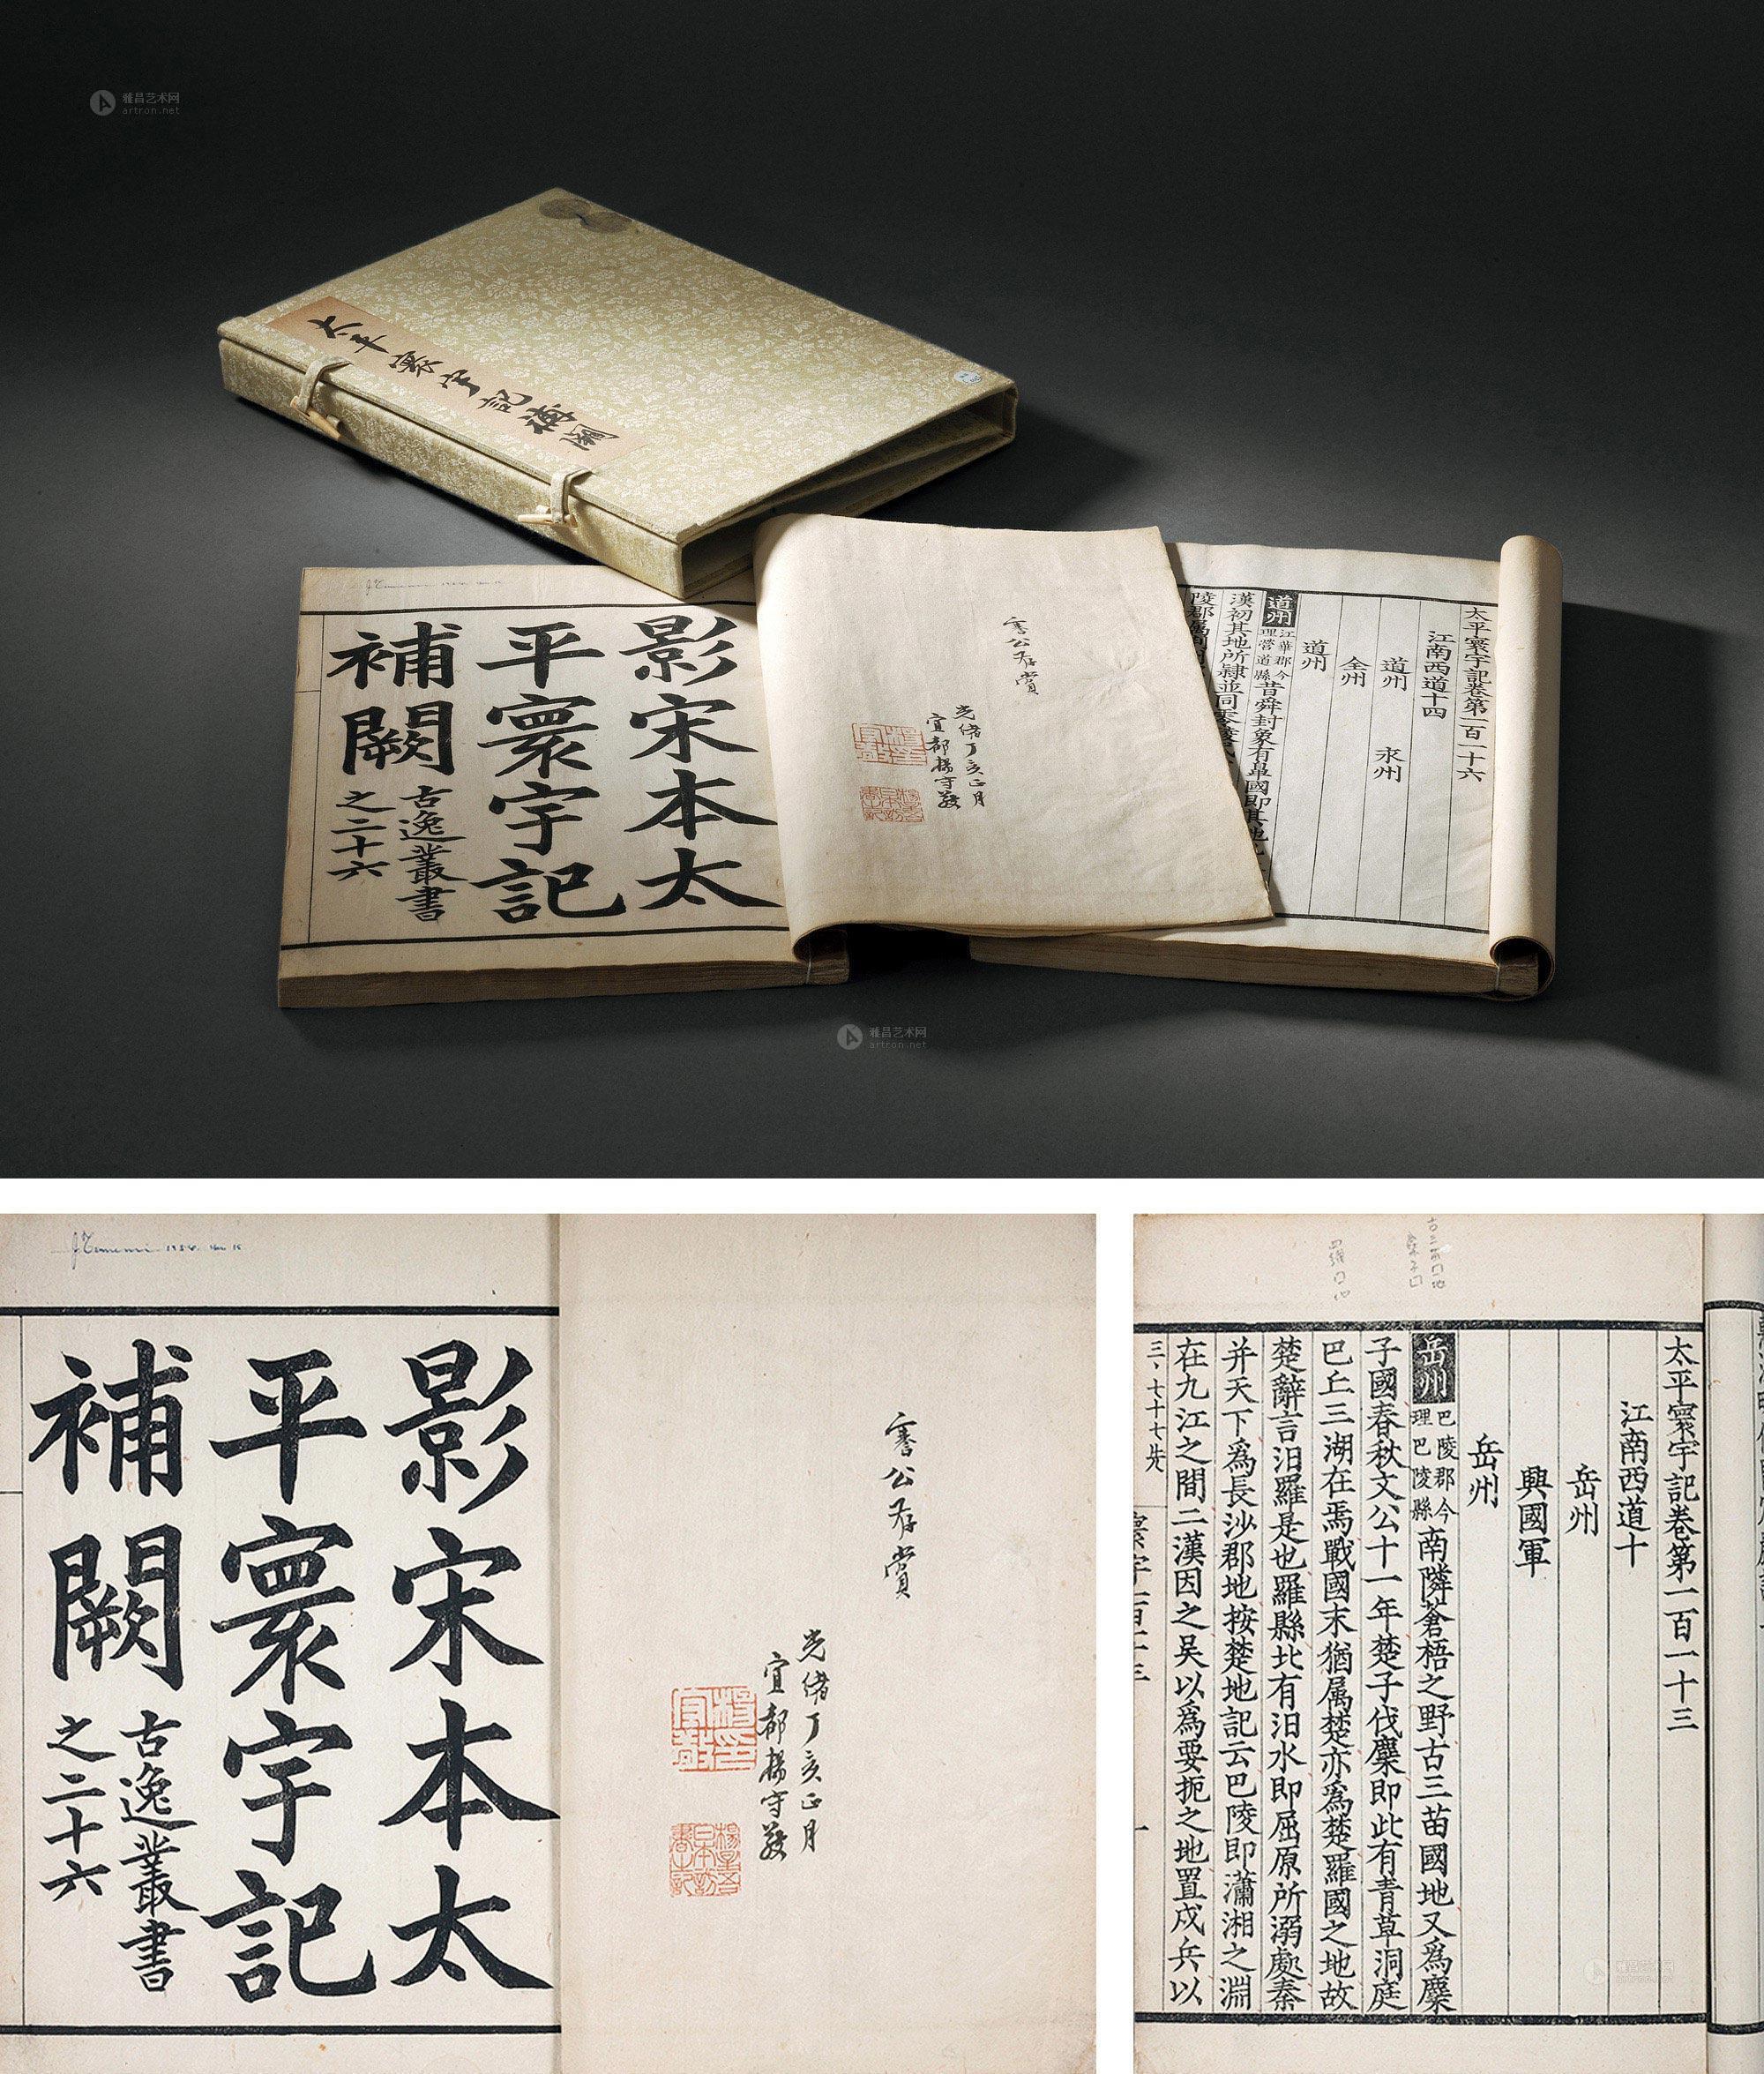 雅昌艺术网
artron.net
太平寰宇記補闕
影宋本太
平寰宇記
補闕
古逸叢書
之二十六
公存賞
光緒丁亥正月
宜都楊守敬
太平寰宇記卷第一百一十六
江南西道十四
道州 永州
全州
道州
道州 江華郡今理營道縣 昔舜封象有鼻國即其地
漢初其地所隸並同
陵郡
雅昌艺术网
artron.net
1954
影宋本太
平寰宇記
補闕
古逸叢書
之二十六
公存賞
光緒丁亥正月
宜都楊守敬
楊守敬印
太平寰宇記卷第一百一十三
江南西道十
岳州
興國軍
岳州
岳州 巴陵郡今理巴陵縣 南隣蒼梧之野古三苗國地又爲麋
子國春秋文公十一年楚子伐麋即此有青草洞庭
巴丘三湖在焉戰國末猶属楚亦爲楚羅國之地故
楚辭言汨羅是也羅縣北有汨水即屈原所溺處秦
并天下爲長沙郡地按楚地記云巴陵即瀟湘之淵
在九江之間二漢因之吴以爲要扼之地置戍兵以